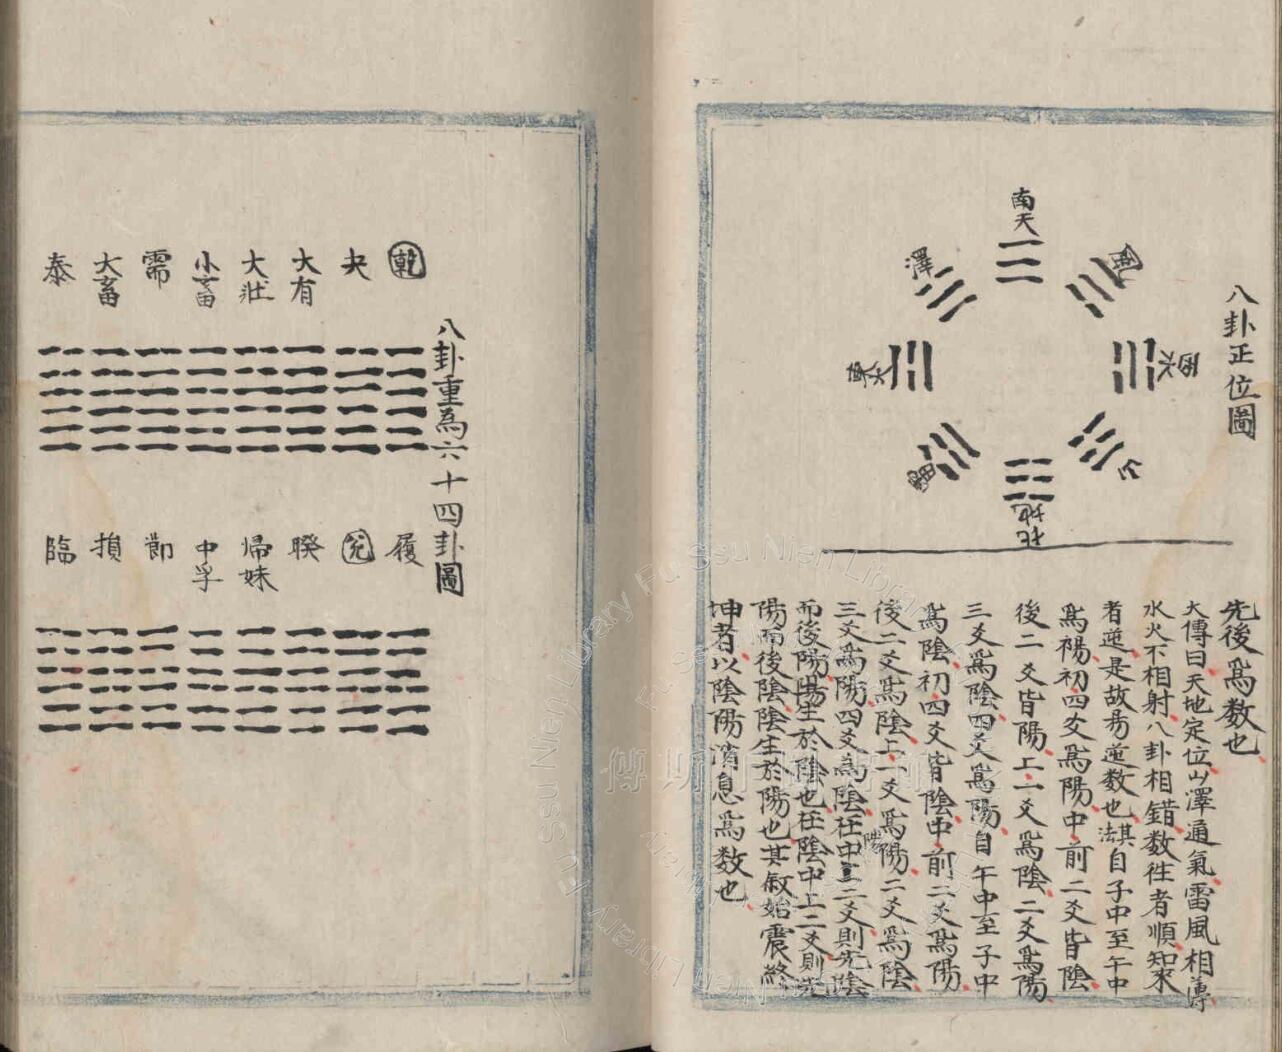 八卦正位圖
南天
風
西水
山
北地
雷
東火
澤
先後爲数也
大傳曰天地定位山澤通氣雷風相薄
水火不相射八卦相錯数徃者順知來
者逆是故昜逆数也其法自子中至午中
爲陽初四爻爲陽中前二爻皆陰
後二爻皆陽上一爻爲陰二爻爲陽
三爻爲陰四爻爲陽自午中至子中
爲陰初四爻皆陰中前二爻爲陽
後二爻爲陰上一爻爲陽二爻爲陰
三爻爲陽四爻爲陰在陽中上二爻則先陰
而後陽陽生於陰也在陰中上二爻則先
陽而後陰陰生於陽也其叙始震終
坤者以陰陽消息爲数也
八卦重為六十四卦圖
乾
夬
大有
大壯
小畜
需
大畜
泰
履
兊
睽
帰妹
中孚
節
損
臨
Fu Ssu Nien Library